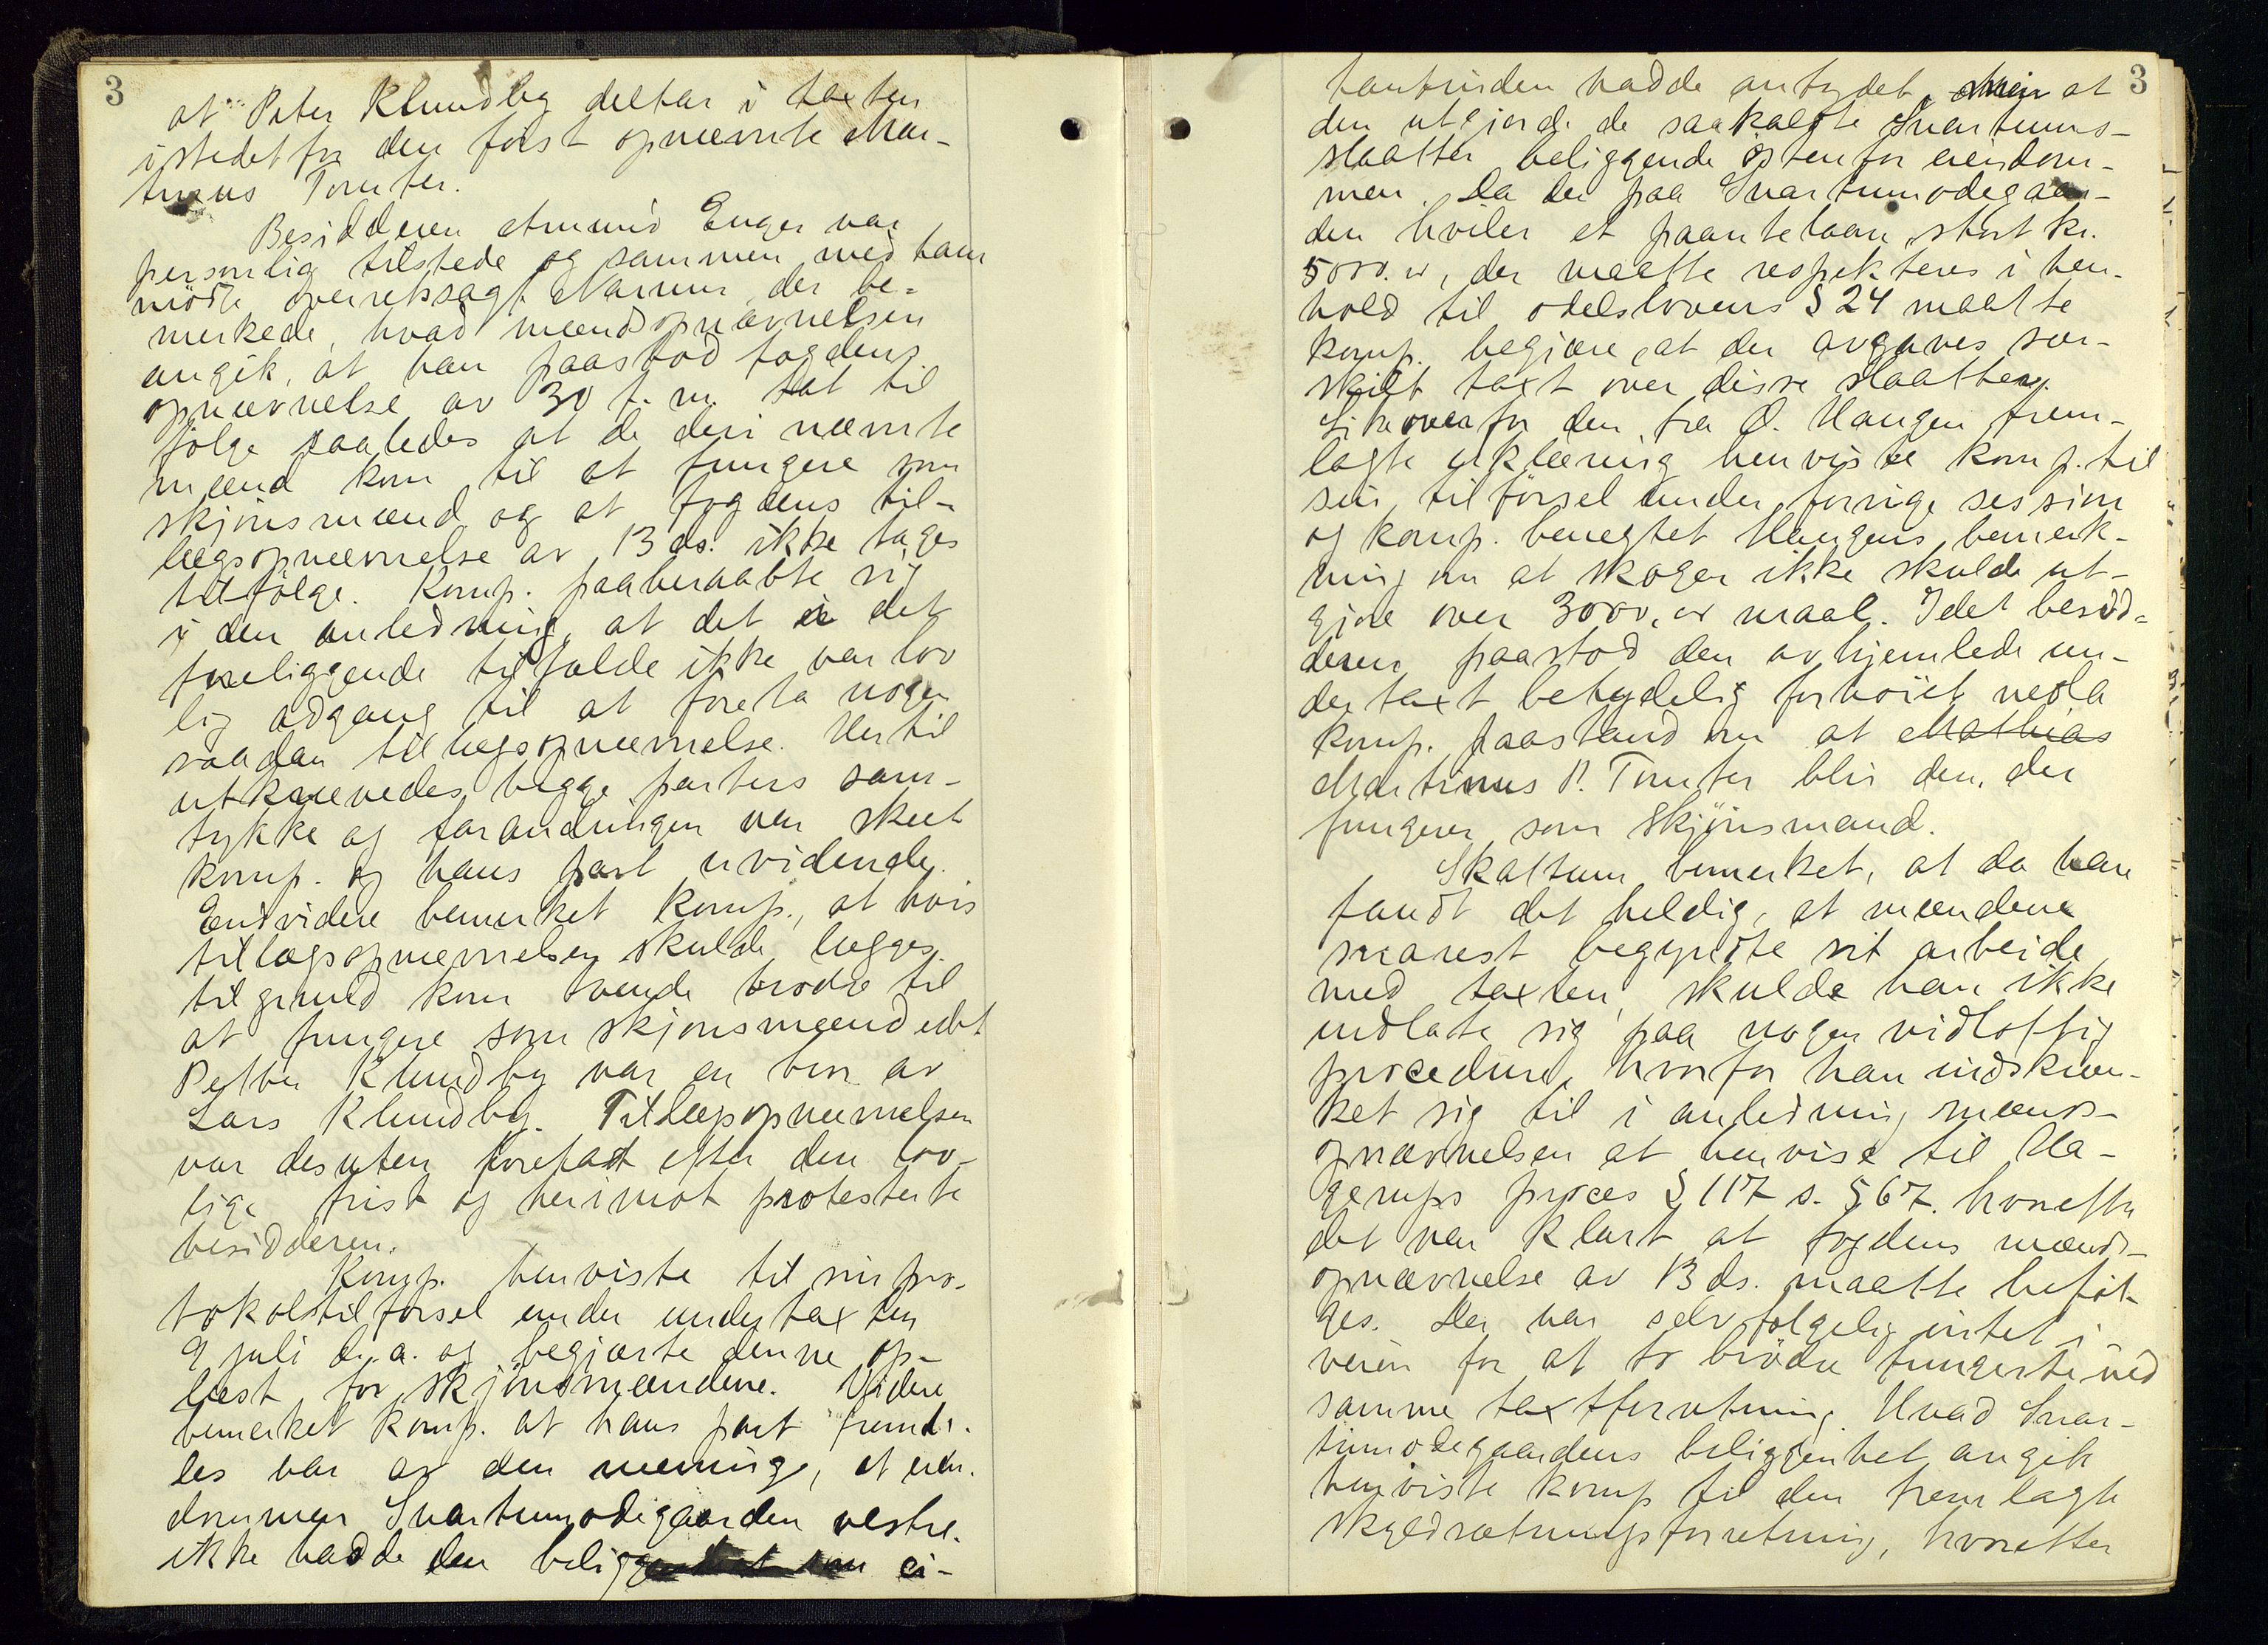 3
at Peter Klundby deltar i taxten
istedetfor den först opnævnte Mar-
tinus Tomter.
Besidderen Amund Enger var
personlig tilstede og sammen med ham
mödte overretssagf. Narum, der be-
merkede, hvad mændsopnævnelsen
angik, at han paastod fogdens
opnævnelse av 30 f. m. tat til
fölge saaledes at de deri nævnte
mænd kom til at fungere som
skjönsmænd og at fogdens til-
lægsopnævnelse av 13 ds. ikke tages
tilfölge. Komp. paaberaabte sig
i den anledning, at det i det
foreliggende tilfælde ikke var lov
lig adgang til at foreta nogen
saadan tillægsopnævnelse. Hertil
utkrævedes begge parters sam-
tykke og forandringen var skeet
komp. og hans part uvidende.
Endvidere bemerket komp., at hvis
tillægsopnævnelsen skulde lægges
til grund kom tvende brödre til
at fungere som skjönsmænd idet
Petter Klundby var en bror av
Lars Klundby. Tillægsopnævnelsen
var desuten foretat efter den lov-
lige frist og herimot protesterte
besidderen.
Komp. henviste til sin pro-
tokoltilförsel under undertaxten
9 juli d. a. og begjærte denne op-
læst for skjönsmændene. Videre
bemerket komp. at hans part fremde-
les var av den mening, at eien-
dommen Svartumödegaarden vestre
ikke hadde den beligge som ei-
3
tantinden hadde antydet, at
den utgjorde de saakaldte Svartums-
slaatter beliggende östenfor eiendom-
men. Da der paa Svartumödegaar-
den hviler et paantelaan stort kr.
5000.00, der maatte respekteres i hen-
hold til odelslovens § 24 maatte
komp. begjære, at der avgaves sær-
skilt taxt over disse slaatter.
Likeoverfor den fra O. Haugen frem-
lagte erklæring henviste komp. til
sin tilförsel under forrige session
og komp. benegtet Haugens bemerk-
ning om at skogen ikke skulde ut-
gjöre over 3000,00 maal. Idet besid-
deren paastod den avhjemlede un-
dertaxt betydelig forhöiet nedla
komp. paastand om at Mathias
Martinus P. Tomter blir den, der
fungerer som skjönsmand.
Skattum bemerket, at da han
fandt det heldig, at mændene
snarest begyndte sit arbeide
med taxten, skulde han ikke
indlate sig paa nogen vidlöftig
procedure, hvorfor han indskræn-
ket sig til i anledning mænds-
opnævnelsen at henvise til Ha-
gerups proces § 117 s. 567. hvorefter
det var klart at fogdens mænds-
opnævnelse av 13 ds. maatte beföl-
ges. Der var selvfölgelig intet i
veien for at to brödre fungerte ved
samme taxtforretning. Hvad Svar-
tumödegaardens beliggenhet angik
henviste komp til den fremlagte
skyldsætningsforretning, hvorefter